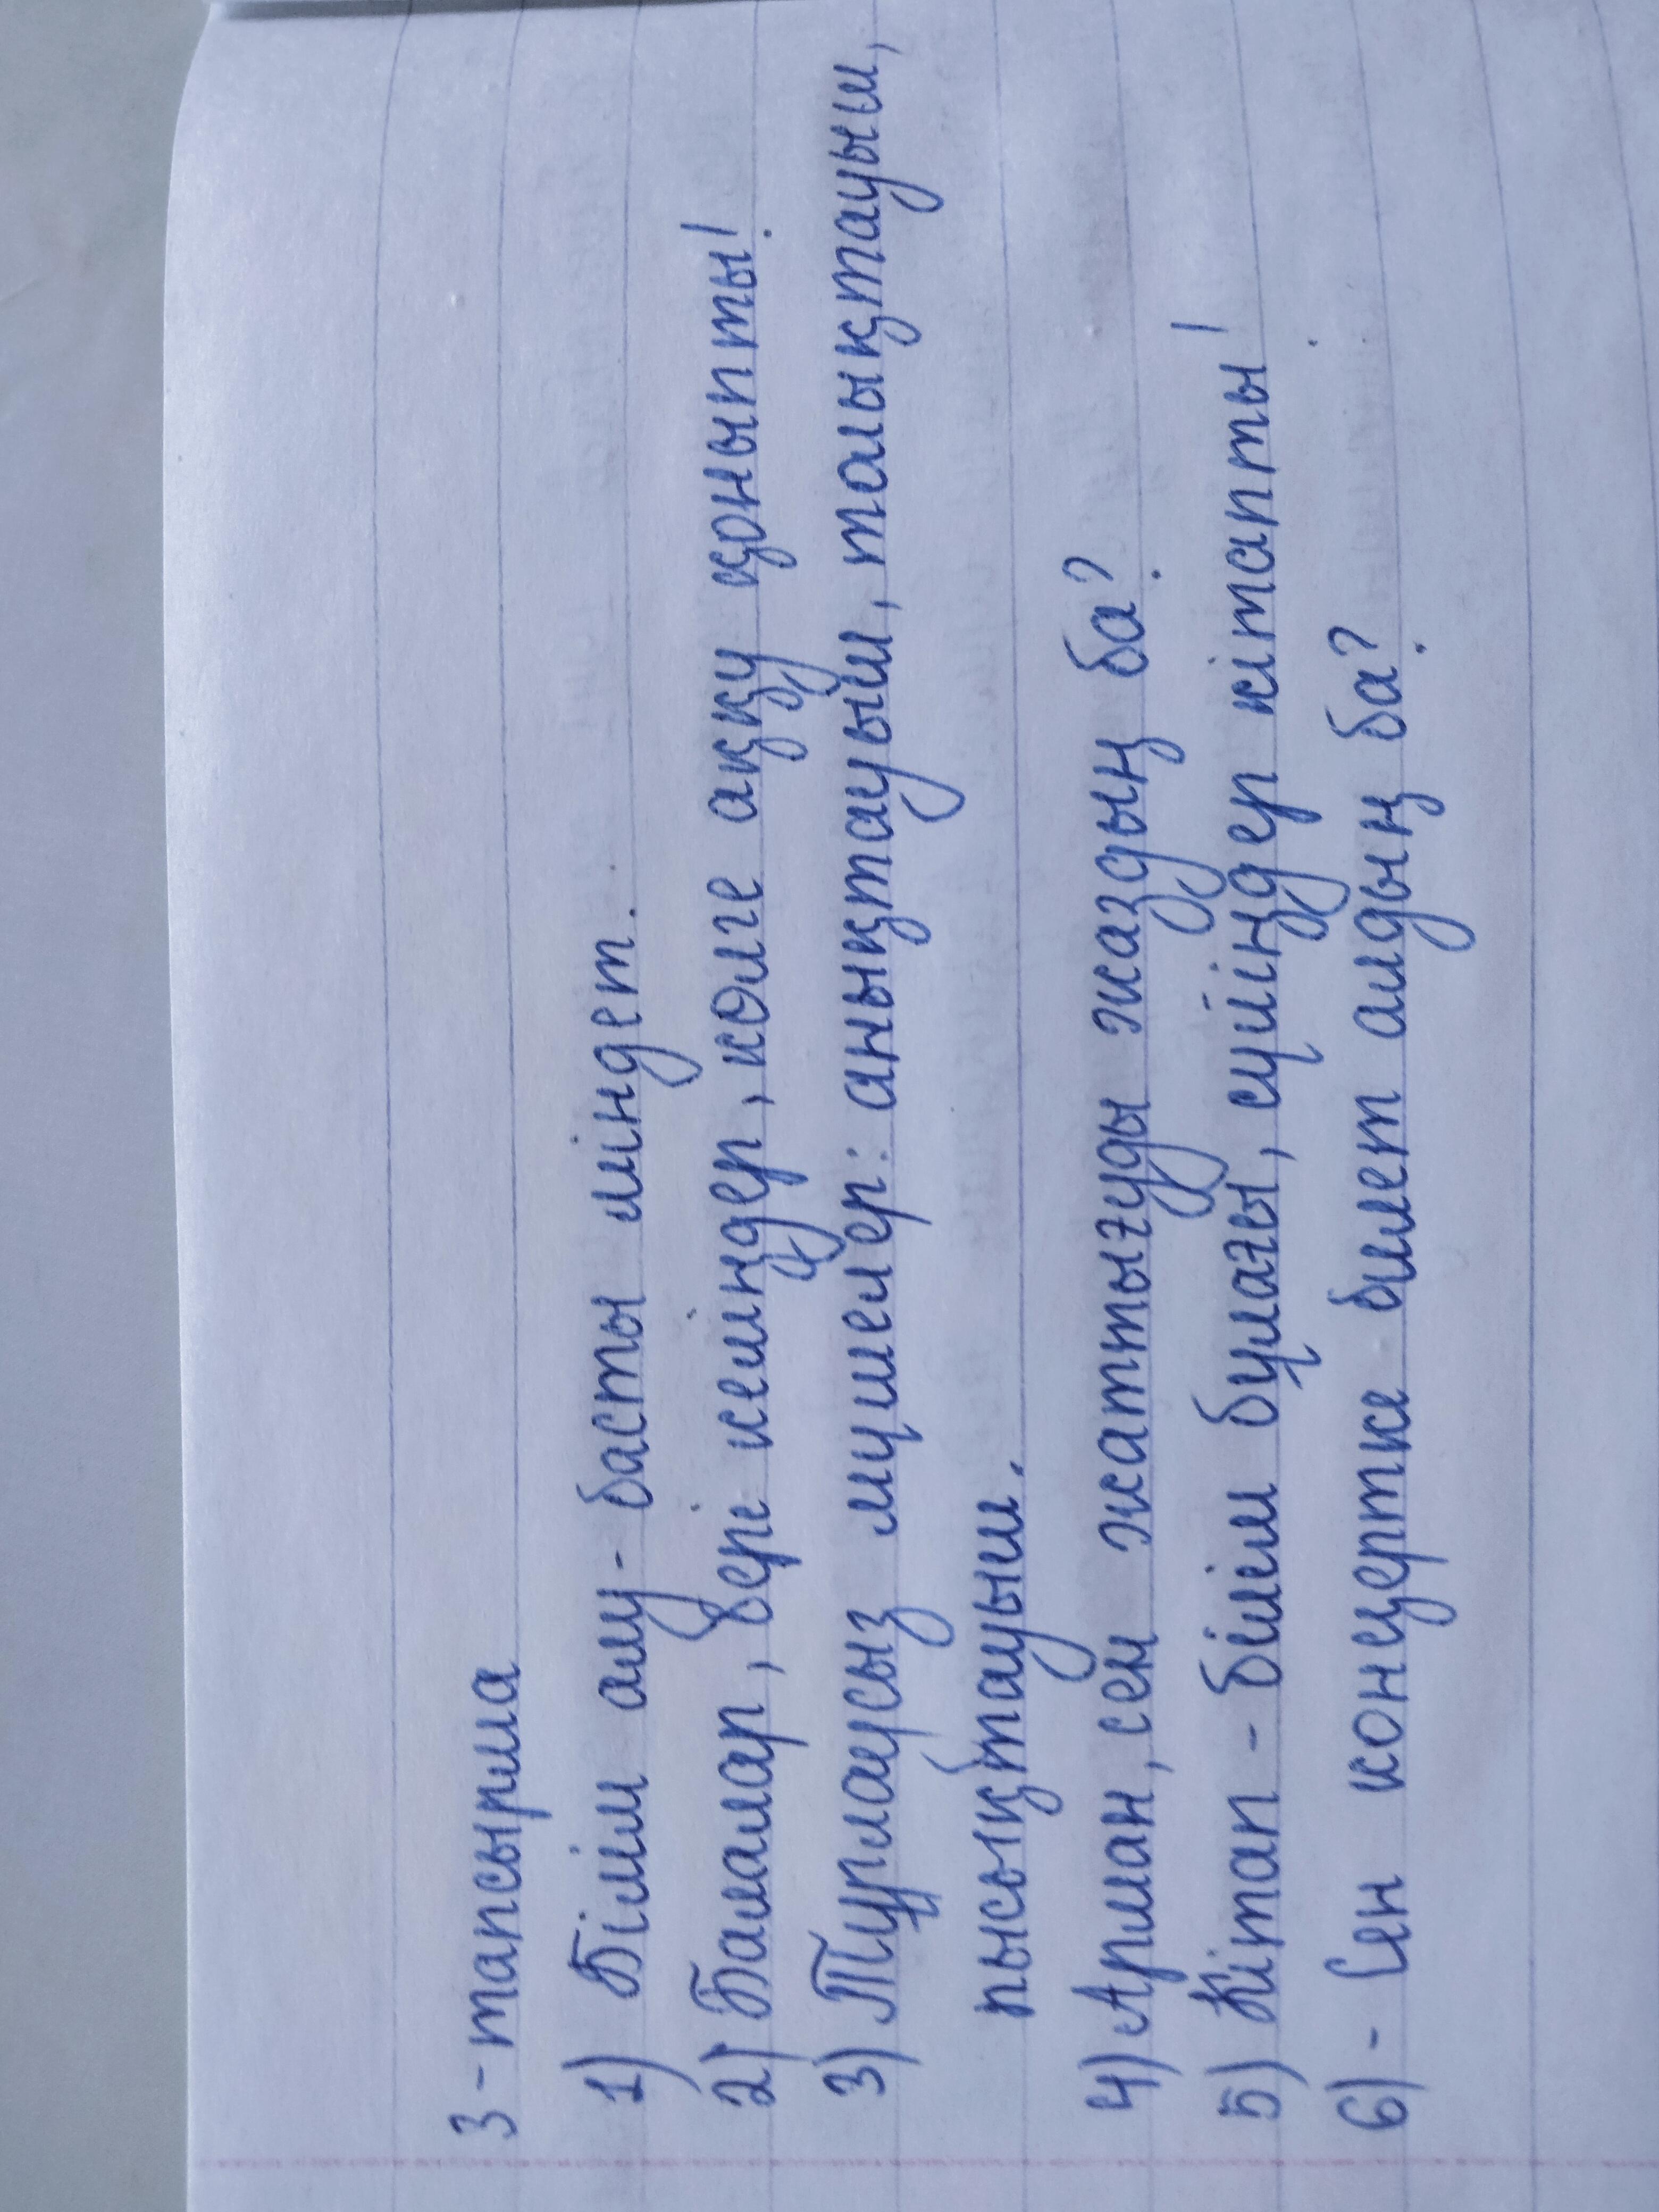 3-тапсырма
1) Білім алу - басты міндет.
2) Балалар, бері келіңдер, көлге аққу қоныпты!
3) Тұрлаусыз мүшелер: анықтауыш, толықтауыш,
пысықтауыш.
4) Арман, сен жаттығуды жаздың ба?
5) Кітап - білім бұлағы, сүйіңдер кітапты!
6) - Сен концертке билет алдың ба?